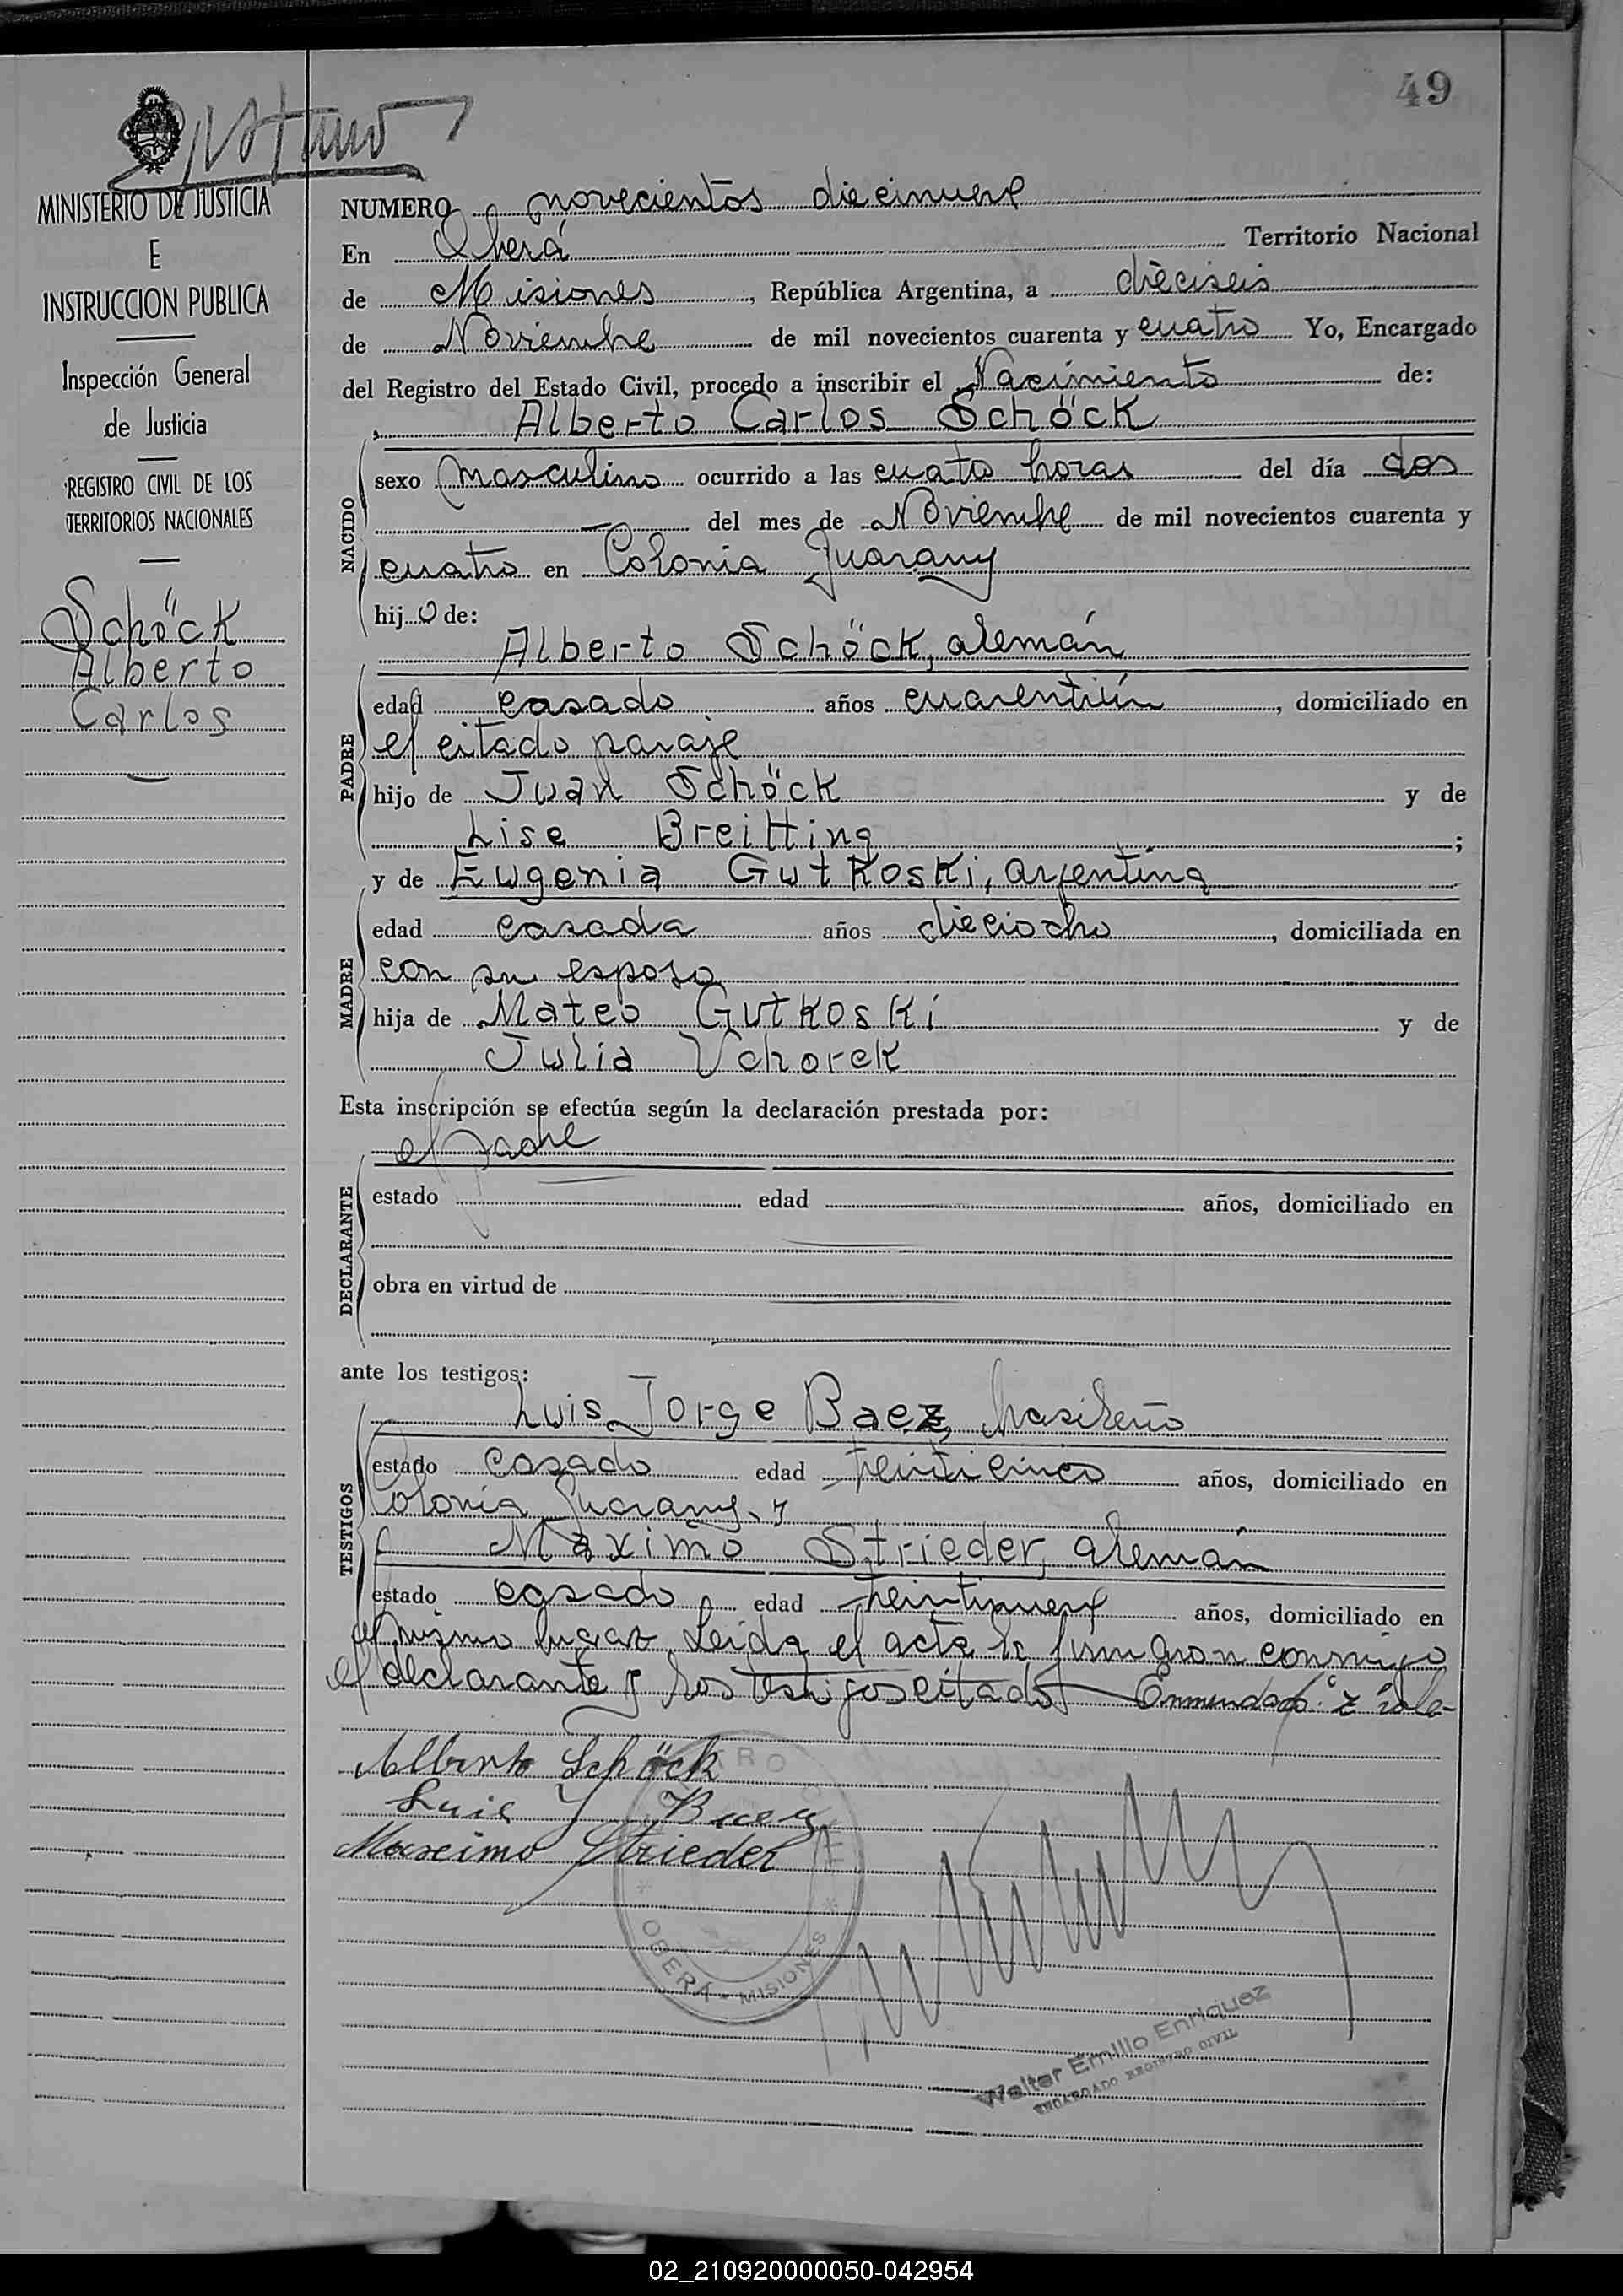 49
MINISTERIO DE JUSTICIA
E
INSTRUCCION PUBLICA
Inspección General
de Justicia
REGISTRO CIVIL DE LOS
TERRITORIOS NACIONALES
Schöck
Alberto
Carlos
NUMERO novecientos diecinueve
En Oberá Territorio Nacional
de Misiones, República Argentina, a dieciseis
de Noviembre de mil novecientos cuarenta y cuatro Yo, Encargado
del Registro del Estado Civil, procedo a inscribir el Nacimiento de:
Alberto Carlos Schöck
NACIDO
sexo masculino ocurrido a las cuatro horas del día dos
del mes de Noviembre de mil novecientos cuarenta y
cuatro en Colonia Guarany
hijo de:
Alberto Schöck, alemán
PADRE
edad casado años cuarentiún, domiciliado en
el citado paraje
hijo de Juan Schöck y de
Lise Breitting;
y de Eugenia Gutkoski, argentina
MADRE
edad casada años dieciocho, domiciliada en
con su esposo
hija de Mateo Gutkoski y de
Julia Vchorek
Esta inscripción se efectúa según la declaración prestada por:
el padre
DECLARANTE
estado edad años, domiciliado en
obra en virtud de
ante los testigos:
Luis Jorge Baez, brasileño
TESTIGOS
estado casado edad treinticinco años, domiciliado en
Colonia Guarany, y
Máximo Strieder, alemán
estado casado edad treintinueve años, domiciliado en
el mismo lugar. Leída el acta la firmaron conmigo
el declarante y los testigos citados Enmendado: "z" vale
Alberto Schöck
Luis J Baez
Maximo Strieder
OBERÁ - MISIONES
Walter Emilio Enriquez
ENCARGADO REGISTRO CIVIL
02_210920000050-042954